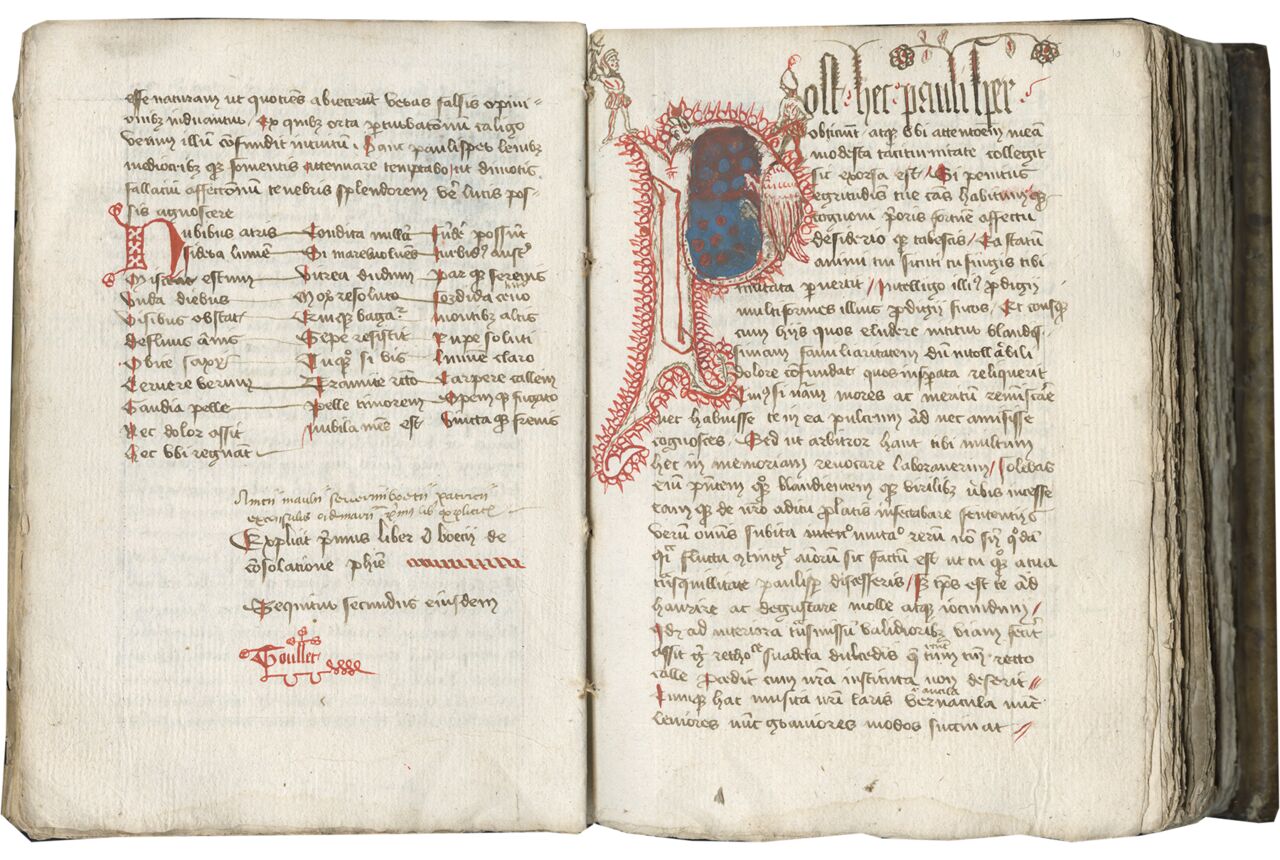 esse naturam ut quociens abiecerint veras falsis opini=
onibz induantur / Ex quibz orta ꝑturbacionum caligo
verum illum cōfundit intuitum . Hanc paulisper lenibz
mediocribz qz fomentis attenuare temptabo / ut dimotis
fallaciū affectionū tenebris splendorem verę lucis pos=
sis agnoscere
Nubibus atris Condita nullū Fūdere possūt
Sidera lumē Si mare voluēs Turbidꝰ auster
Misceat estum Vitrea dudum Par qz serenis
Vnda diebus Mox resoluto Sordida ceno
Visibus obstat Quiqz vagatur Montibz altis
Defluus āmis Sepe resistit Rupe soluti
Obice saxi Tu qz si vis Lumine claro
Cernere verum Tramite rc̄to Carpere callem
Gaudia pelle Pelle timorem Spem qz fugato
Nec dolor assit Nubila mēs est Vincta qz frenis
Hec vbi regnāt
Anicii manlii seuerini boecii patricii
exconsulis ordinarii primi lib explicit
Explicit pͥmus liber boecii de
cōsolacione phīe
Sequitur secundus eiusdem
Goullet
Post hec paulisper
obticuit atqz vbi attentoem meā
modesta taciturnitate collegit
sic exorsa est / Si penitus
egritudinis tue cās habitum qz
cognoui pͥoris fortūe affectu
desiderio qz tabescis / Ea statū
animi tui sicuti tu fingis tibi
mutata ꝑuertit / Intelligo illiꝰ ꝓdigii
multiformes illius ꝓdigii fucos / Et eousqz
cum hiis quos eludere nititur blandis=
simam familiaritatem dū intollābili
dolore cōfundat quos insperata reliquerit
Cuiꝰ si nām mores ac meritū reminiscare
nec habuisse te in ea pulcrum ad nec amisisse
cognosces . Sed ut arbitror haut tibi multum
hec in memoriam reuocare laborauerim / Solebas
eīm pn̄tem qz blandientem qz virilibz ūbis incesse
eam qz de nr̄o aditu ꝓlatis insectabare sentenciis
Verū omīs subita rerū nō sn̄
fluctu aīorum sic factum est ut tu qz a tua
trāsquillitate paulisꝑ discesseris / Sꝫ tp̄s est te ad
haurire ac degustare molle atqz iocundum /
Id qz ad interiora trāsmissū validioribz viam fecit
Assit suadela dulcedis q̄ tūc tm̄ recto
calle ꝓcedit cum nr̄a instituta non deserit
Cumqz hac musica nr̄i laris vernacula nūc
ancilla
leuiores nūc grauiores modos succinat